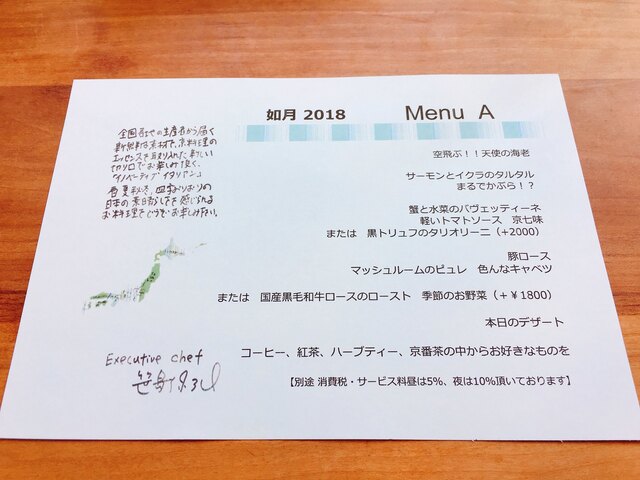 如月 2018
Menu A
全国各地の生産者から届く
新鮮な素材で、京料理の
エッセンスを取り入れた新しい
切り口でお楽しみ頂く、
「イノベーティブイタリアン」
春夏秋冬、四季おりおりの
日本の素晴らしさを感じられる
お料理をどうぞお楽しみ下さい。
Executive chef
空飛ぶ！！天使の海老
サーモンとイクラのタルタル
まるでかぶら！？
蟹と水菜のバヴェッティーネ
軽いトマトソース 京七味
または 黒トリュフのタリオリーニ（+2000）
豚ロース
マッシュルームのピュレ 色んなキャベツ
または 国産黒毛和牛ロースのロースト 季節のお野菜（+￥1800）
本日のデザート
コーヒー、紅茶、ハーブティー、京番茶の中からお好きなものを
【別途 消費税・サービス料昼は5%、夜は10%頂いております】